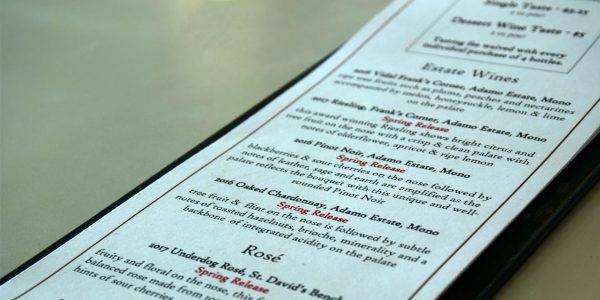 Single Taste - $3.25
2 oz pour
Dessert Wine Taste - $5
1 oz pour
Tasting fee waived with every
individual purchase of 4 bottles.
Estate Wines
2016 Vidal Frank's Corner, Adamo Estate, Mono
ripe tree fruits such as plums, peaches and nectarines
accompanied by melon, honeysuckle, lemon & lime
on the palate
2017 Riesling, Frank's Corner, Adamo Estate, Mono
Spring Release
this award winning Riesling shows bright citrus and
tree fruit on the nose with a crisp & clean palate with
notes of elderflower, apricot & ripe lemon
2016 Pinot Noir, Adamo Estate, Mono
Spring Release
blackberries & sour cherries on the nose followed by
notes of leather, sage and earth are amplified as the
palate reflects the bouquet with this unique and well-
rounded Pinot Noir
2016 Oaked Chardonnay, Adamo Estate, Mono
Spring Release
tree fruit & flint on the nose followed by subtle
notes of toasted hazelnuts, brioche, minerality and a
backbone of integrated acidity on the palate
Rosé
2017 Underdog Rosé, St. David's Bench
Spring Release
fruity and floral on the nose, this
balanced rosé made from
hints of sour cherries